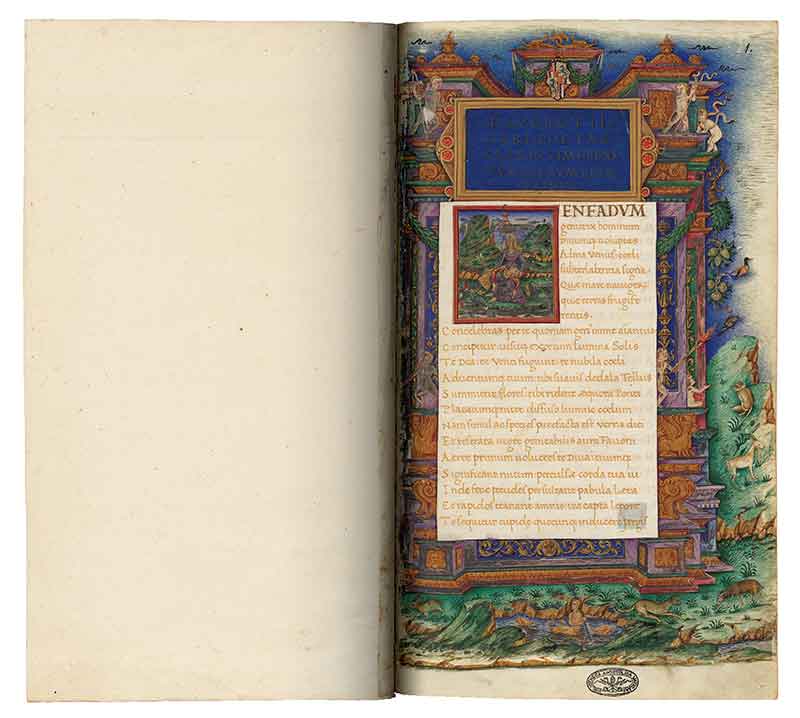 1.
ENEADVM
genitrix hominum
diuumq; uoluptas
Alma Venus: coeli
subter labentia signa
Quae mare nauigerum
quae terras frugife
rentis.
Concelebras per te quoniam genus omne aiantum
Concipitur uisitq; exortum lumina Solis
Te Dea te Venti fugiunt: te nubila coeli
Aduentumq; tuum: tibi suauis dedala Tellus
Summittit flores: tibi rident aequora Ponti
Placatumq; nitet diffuso lumine coelum
Nam simul ac species patefacta est Verna diei
Et reserata uiget genitabilis aura Fauoni
Aeriae primum uolucres te Diua tuumq;
Significant initum perculsae corda tua ui
Inde ferae pecudes persultant pabula laeta
Et rapidos tranant amnis: ita capta lepore
Te sequitur cupide quocunq; inducere pergis